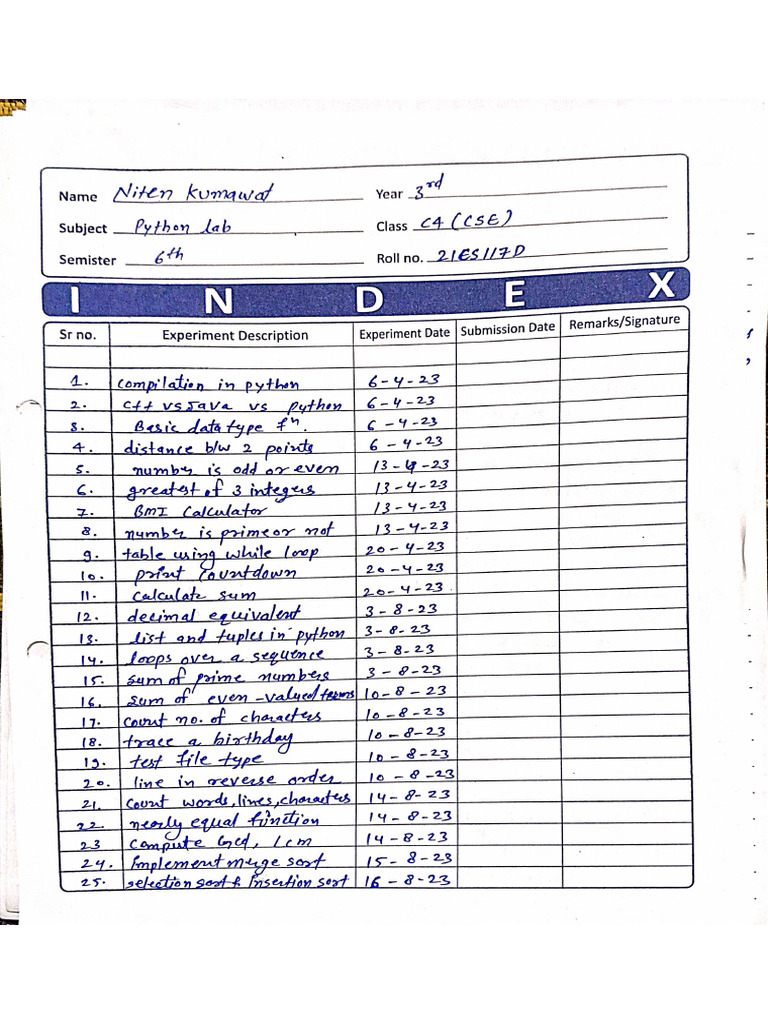 Name Niten Kumawat Year 3rd
Subject Python lab Class C4 (CSE)
Semister 6th Roll no. 21ES117D
INDEX
Sr no. Experiment Description Experiment Date Submission Date Remarks/Signature
1. compilation in python 6-4-23
2. C++ vs Java vs python 6-4-23
3. Basic data type fn. 6-4-23
4. distance b/w 2 points 6-4-23
5. number is odd or even 13-4-23
6. greatest of 3 integers 13-4-23
7. BMI Calculator 13-4-23
8. number is prime or not 13-4-23
9. table using while loop 20-4-23
10. print countdown 20-4-23
11. calculate sum 20-4-23
12. decimal equivalent 3-8-23
13. list and tuples in python 3-8-23
14. loops over a sequence 3-8-23
15. sum of prime numbers 3-8-23
16. sum of even-valued terms 10-8-23
17. count no. of characters 10-8-23
18. trace a birthday 10-8-23
19. test file type 10-8-23
20. line in reverse order 10-8-23
21. count words, lines, characters 14-8-23
22. nearly equal function 14-8-23
23 compute Gcd, lcm 14-8-23
24. Implement merge sort 15-8-23
25. selection sort & Insertion sort 16-8-23